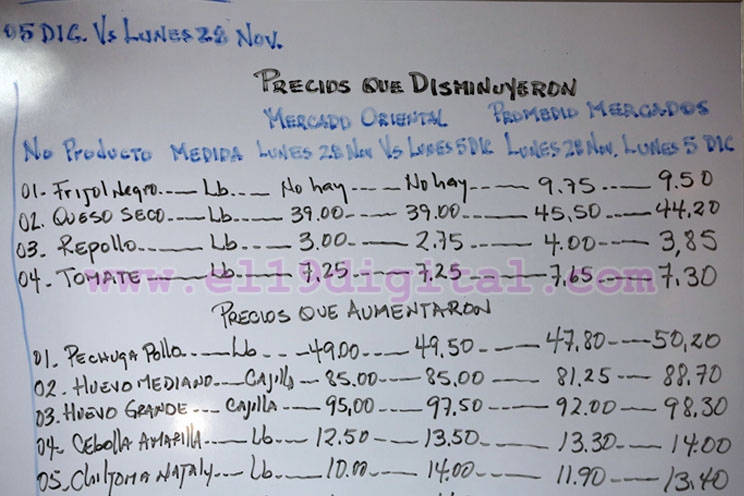 05 DIC. Vs LUNES 28 NOV.
PRECIOS QUE DISMINUYERON
MERCADO ORIENTAL PROMEDIO MERCADOS
No PRODUCTO MEDIDA LUNES 28 Nov Vs LUNES 5 DIC LUNES 28 Nov. LUNES 5 DIC
01- FRIJOL NEGRO---- Lb---- No hay ---- No hay---- 9.75 ---- 9.50
02. QUESO SECO---- Lb---- 39.00---- 39.00---- 45,50---- 44,20
03. REPOLLO---- Lb---- 3.00---- 2.75---- 4.00---- 3,85
04- TOMATE---- Lb---- 7,25---- 7,25---- 7,65---- 7,30
www.el19digital.com
PRECIOS QUE AUMENTARON
01. PECHUGA POLLO---- Lb---- 49.00---- 49,50---- 47.80---- 50,20
02. HUEVO MEDIANO---- CAJILLA---- 85.00---- 85,00---- 81.25---- 88.70
03. HUEVO GRANDE---- CAJILLA---- 95,00---- 97.50---- 92.00---- 98.30
04- CEBOLLA AMARILLA---- Lb---- 12.50---- 13,50---- 13.30---- 14.00
05- CHILTOMA NATALY---- Lb---- 10.00---- 14.00---- 11.90---- 13.40